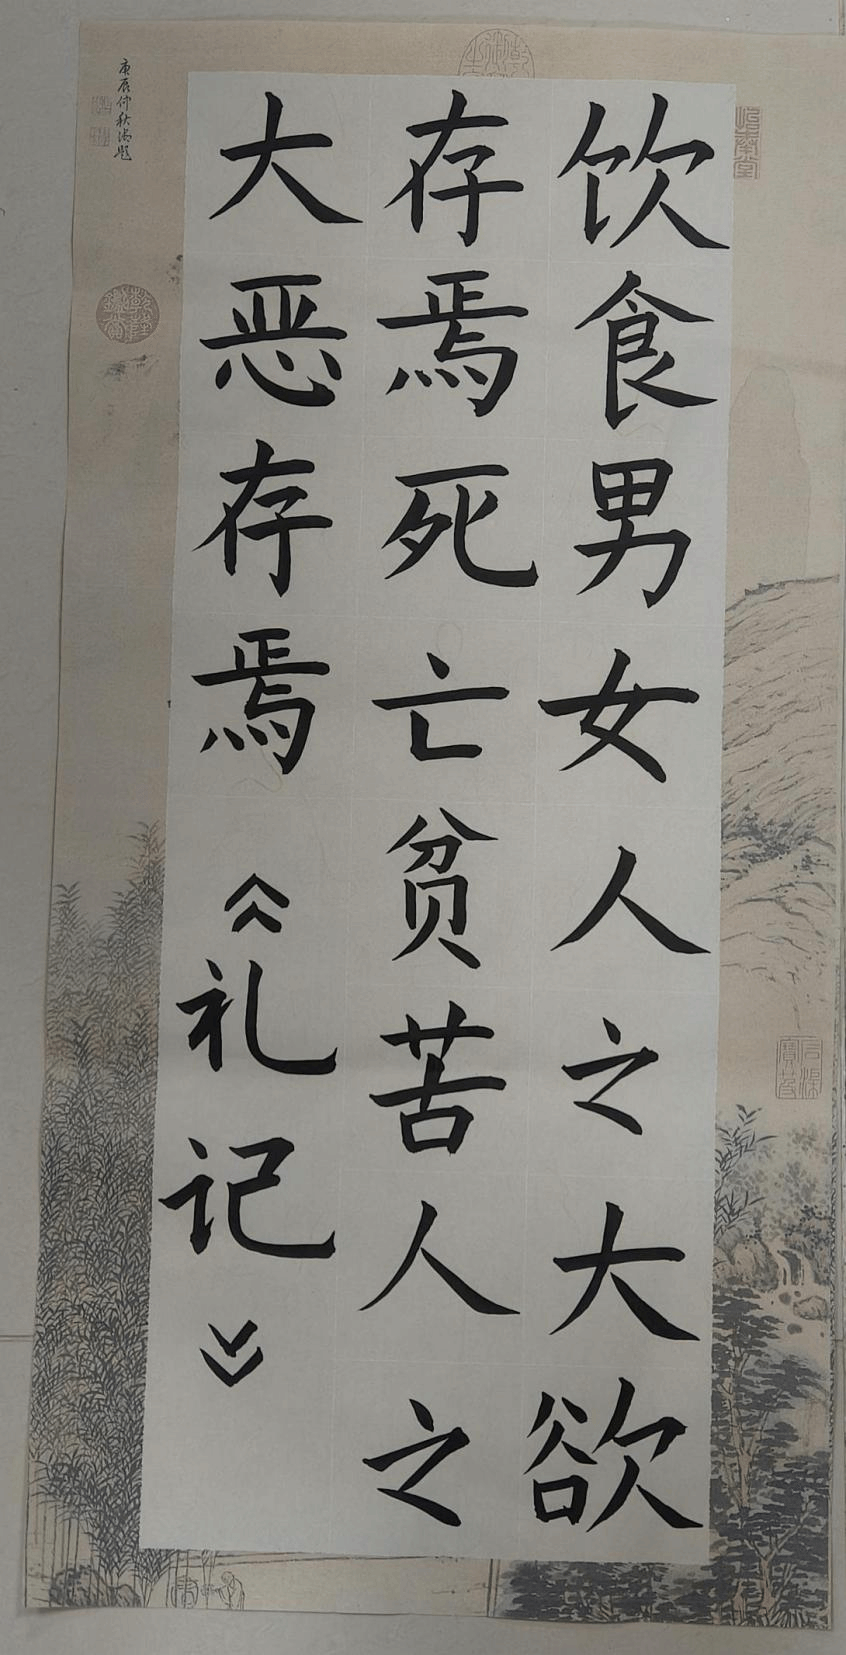 饮食男女人之大欲
存焉死亡贫苦人之
大恶存焉《礼记》
庚辰仲秋御题